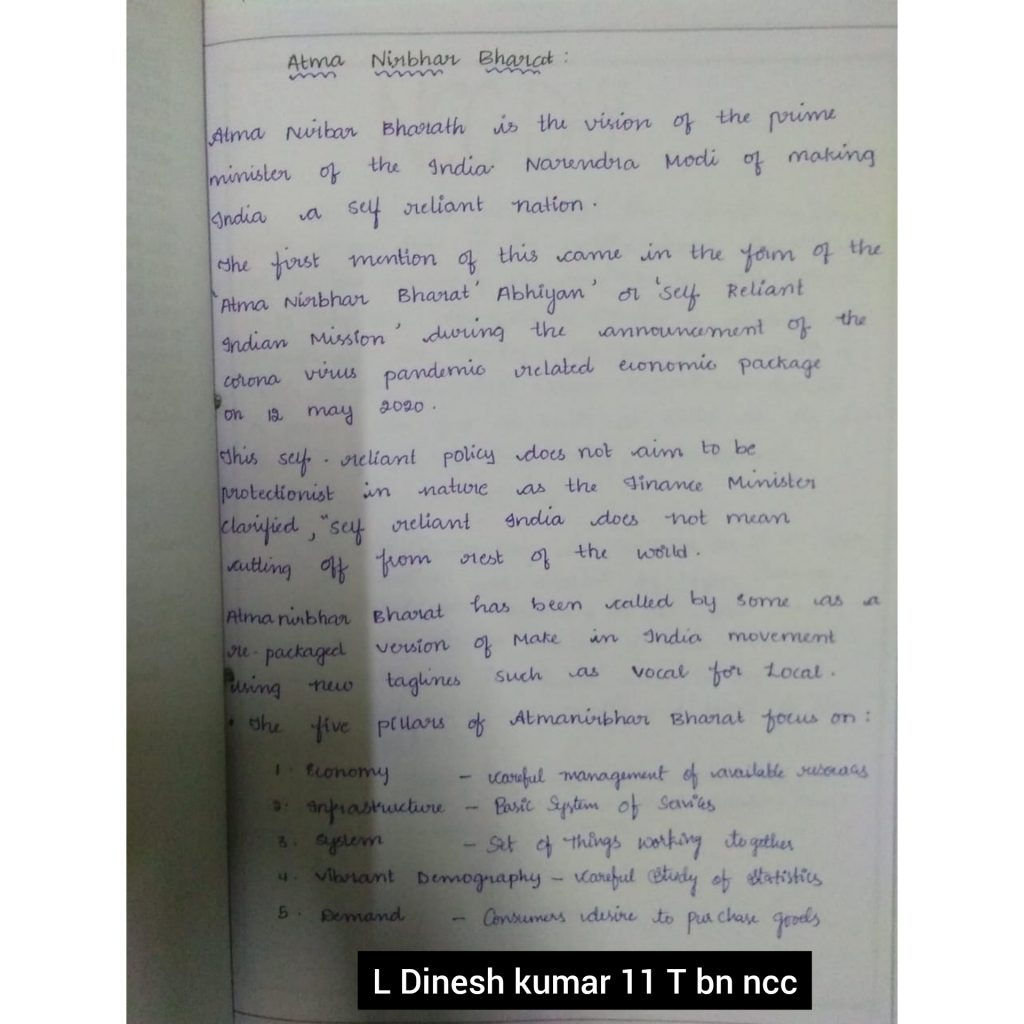 Atma Nirbhar Bharat :
Atma Nirbar Bharath is the vision of the prime
minister of the India. Narendra Modi of making
India a self reliant nation.
The first mention of this came in the form of the
'Atma Nirbhar Bharat' Abhiyan' or 'self Reliant
Indian Mission' during the announcement of the
corona virus pandemic related economic package
on 12 may 2020.
This self-reliant policy does not aim to be
protectionist in nature as the Finance Minister
clarified, "self reliant India does not mean
cutting off from rest of the world.
Atmanirbhar Bharat has been called by some as a
re-packaged version of Make in India movement
using new taglines such as vocal for Local.
• The five pillars of Atmanirbhar Bharat focus on :
1. Economy – careful management of available resources
2. Infrastructure – Basic System of Services
3. System – Set of things working together
4. Vibrant Demography – careful Study of Statistics
5. Demand – Consumers desire to purchase goods
L Dinesh kumar 11 T bn ncc